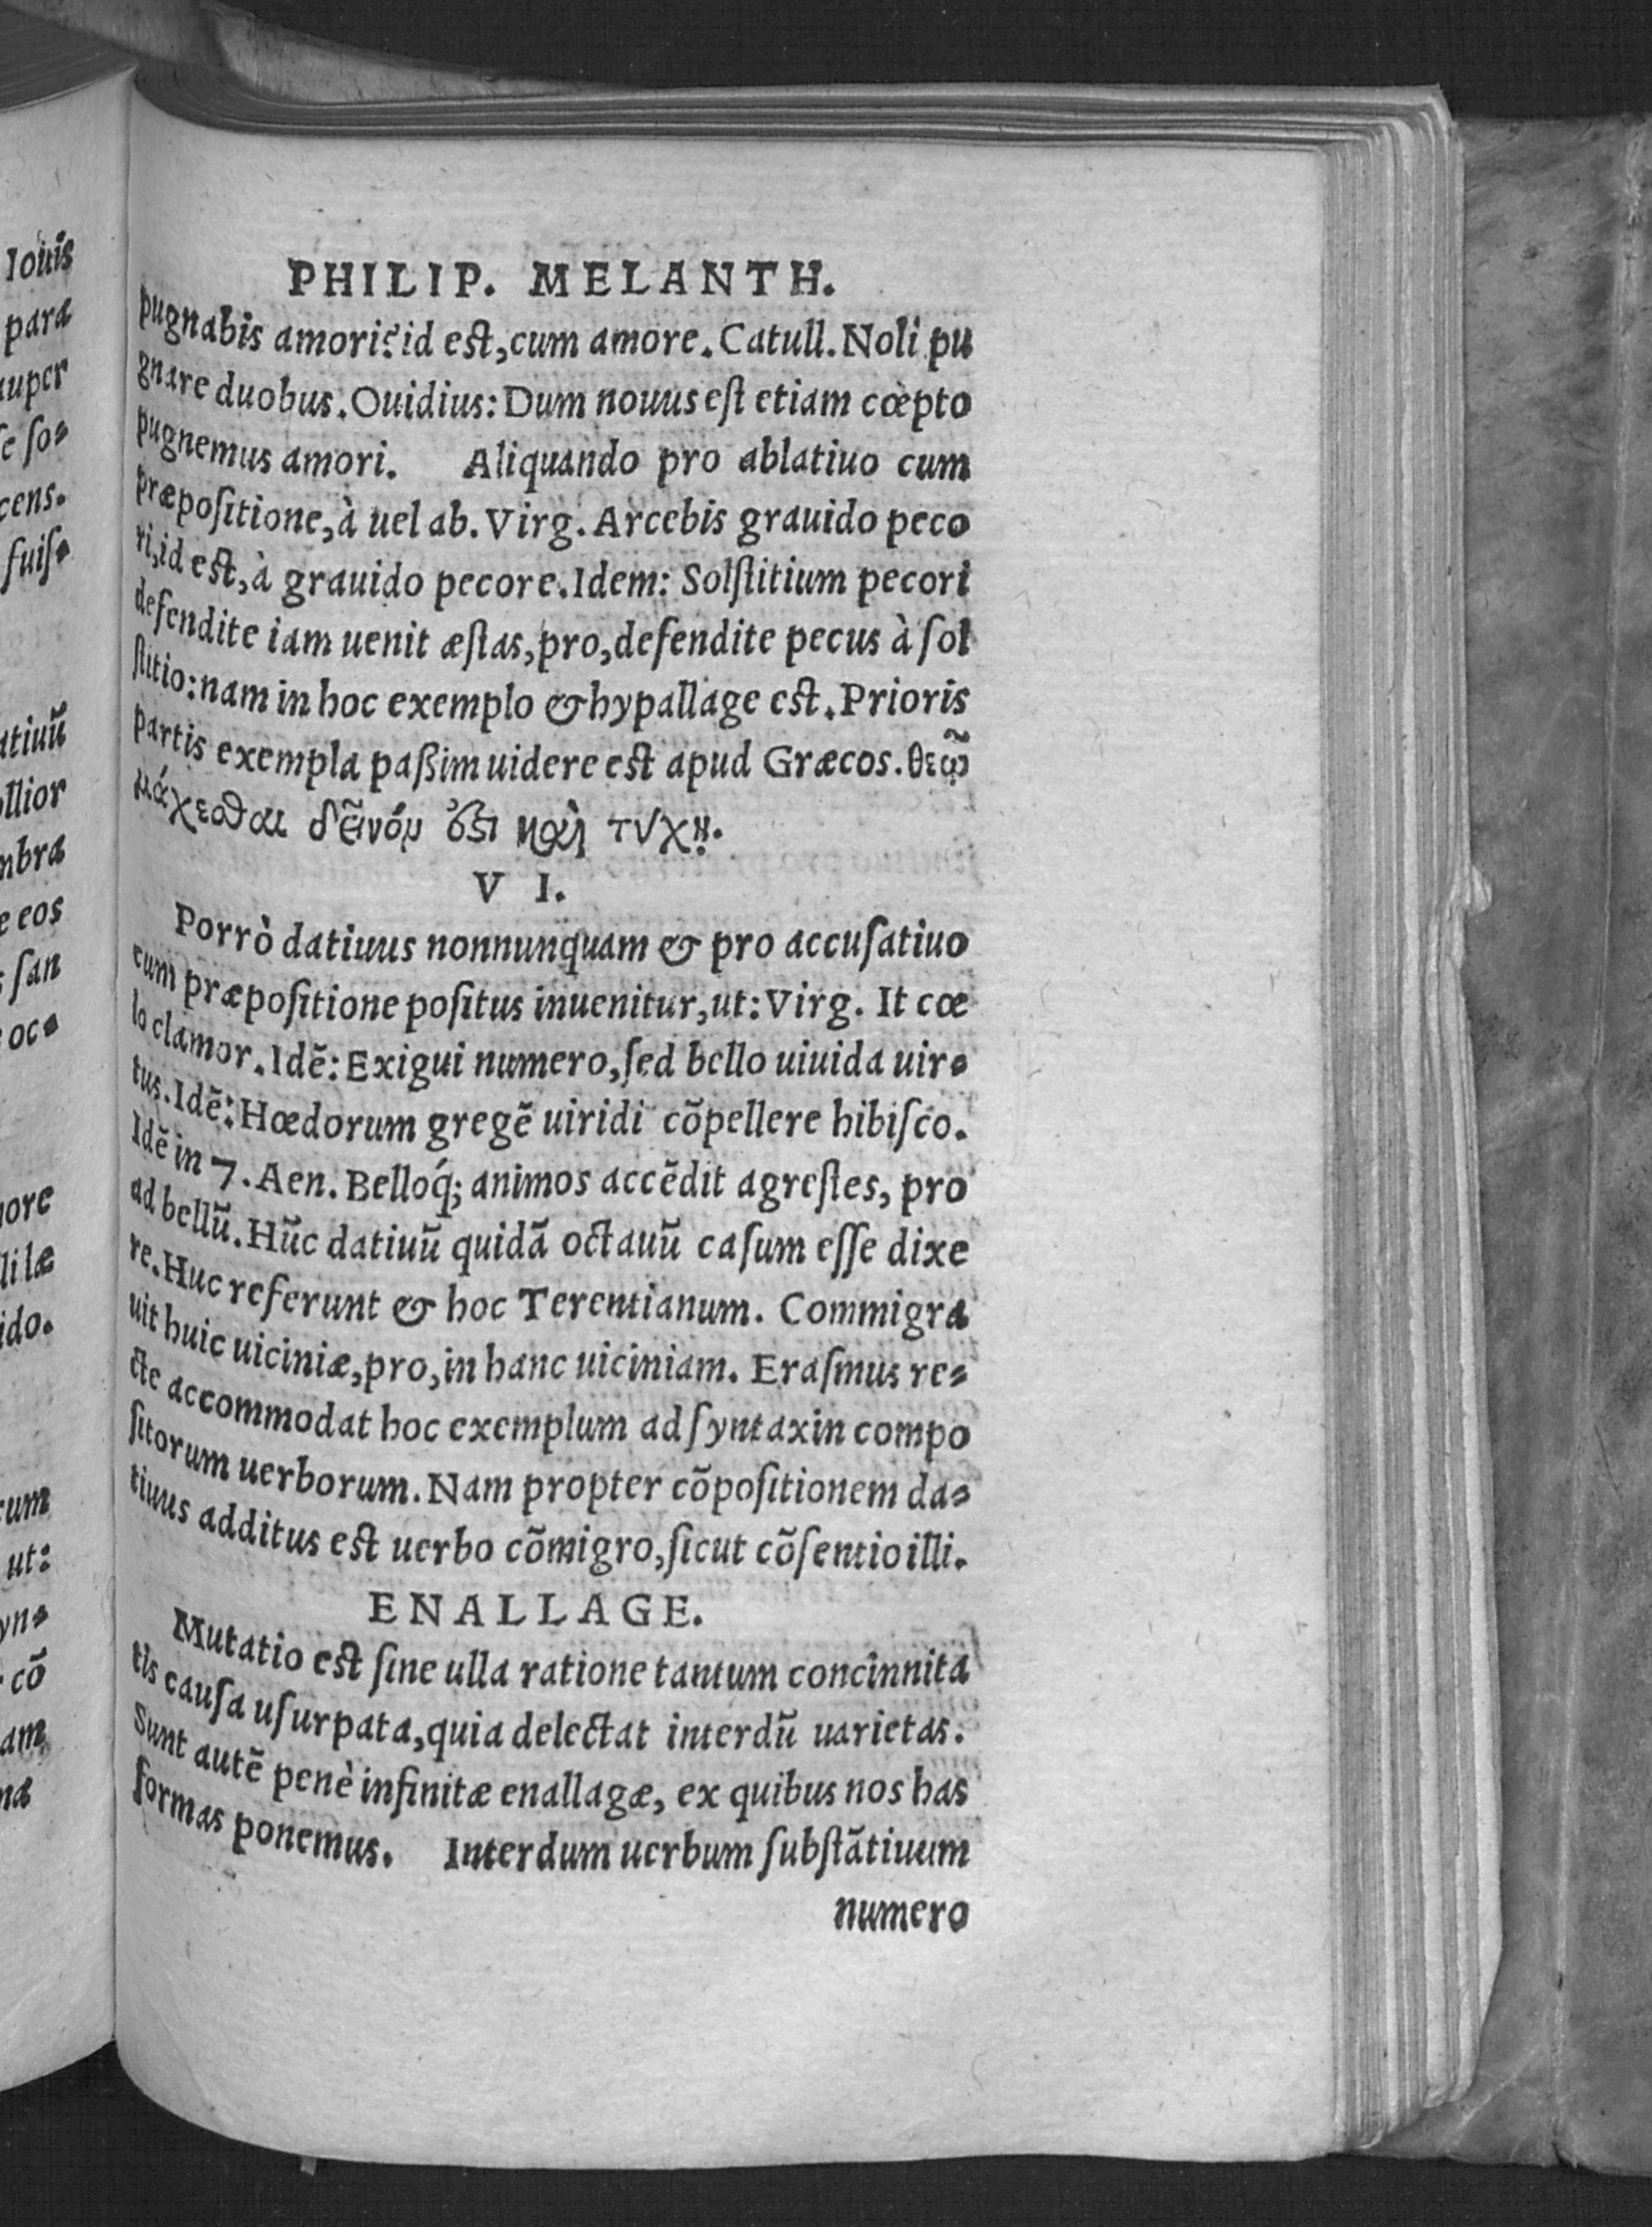 PHILIP. MELANTH.
pugnabis amori? id est, cum amore. Catull. Noli pu
gnare duobus. Ouidius: Dum nouus est etiam cœpto
pugnemus amori. Aliquando pro ablatiuo cum
præpositione, à uel ab. Virg. Arcebis grauido peco
ri, id est, à grauido pecore. Idem: Solstitium pecori
defendite iam uenit æstas, pro, defendite pecus à sol
stitio: nam in hoc exemplo & hypallage est. Prioris
partis exempla paßim uidere est apud Græcos. θεῷ
μάχεσθαι δεινόν ὅξι καὶ τύχῃ.
V I.
Porrò datiuus nonnunquam & pro accusatiuo
cum præpositione positus inuenitur, ut: Virg. It cœ
lo clamor. Idẽ: Exigui numero, sed bello uiuida uir-
tus. Idẽ: Hœdorum gregẽ uiridi cõpellere hibisco.
Idẽ in 7. Aen. Belloq́; animos accẽdit agrestes, pro
ad bellũ. Hũc datiuũ quidã octauũ casum esse dixe
re. Huc referunt & hoc Terentianum. Commigra
uit huic uiciniæ, pro, in hanc uiciniam. Erasmus re-
cte accommodat hoc exemplum ad syntaxin compo
sitorum uerborum. Nam propter cõpositionem da-
tiuus additus est uerbo cõmigro, sicut cõsentio illi.
ENALLAGE.
Mutatio est sine ulla ratione tantum concinnita
tis causa usurpata, quia delectat interdũ uarietas.
Sunt autẽ penè infinitæ enallagæ, ex quibus nos has
formas ponemus. Interdum uerbum substãtiuum
numero